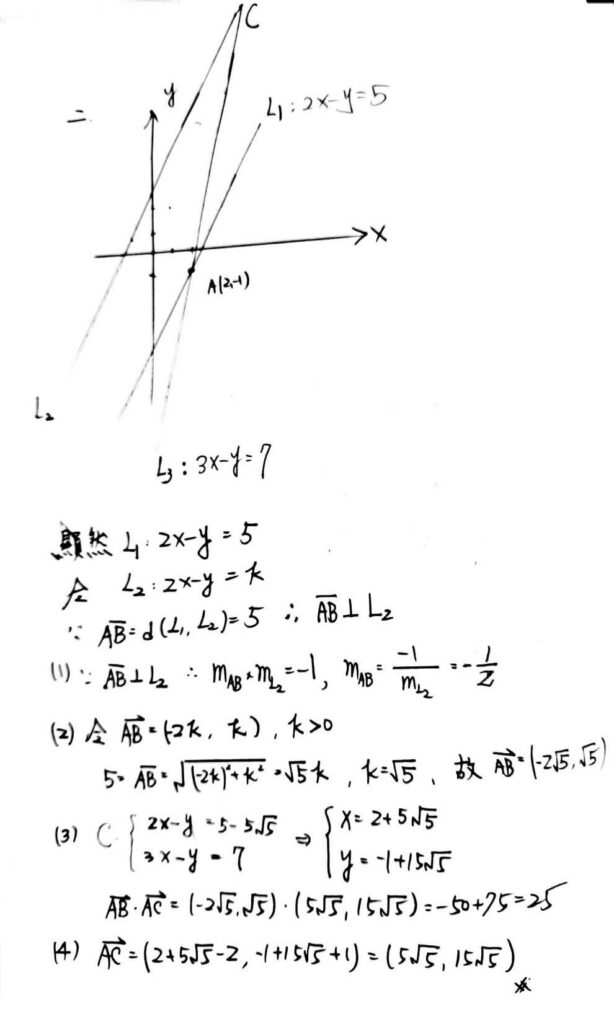 C
二.
y
L₁: 2x-y=5
X
A(2,-1)
L₂
L₃: 3x-y=7
顯然 L₁: 2x-y=5
令 L₂: 2x-y=k
∵ A̅B̅=d(L₁, L₂)=5 ∴ A̅B̅⊥L₂
(1) ∵ A̅B̅⊥L₂ ∴ m_AB × m_L₂=-1, m_AB=-1/m_L₂=-1/2
(2) 令 AB⃗=(-2k, k), k>0
5=A̅B̅=√((-2k)²+k²)=√5k, k=√5, 故 AB⃗=(-2√5,√5)
(3) C { 2x-y=5-5√5 ⇒ { x=2+5√5
3x-y=7 y=-1+15√5
AB⃗·AC⃗=(-2√5,√5)·(5√5,15√5)=-50+75=25
(4) AC⃗=(2+5√5-2, -1+15√5+1)=(5√5, 15√5)